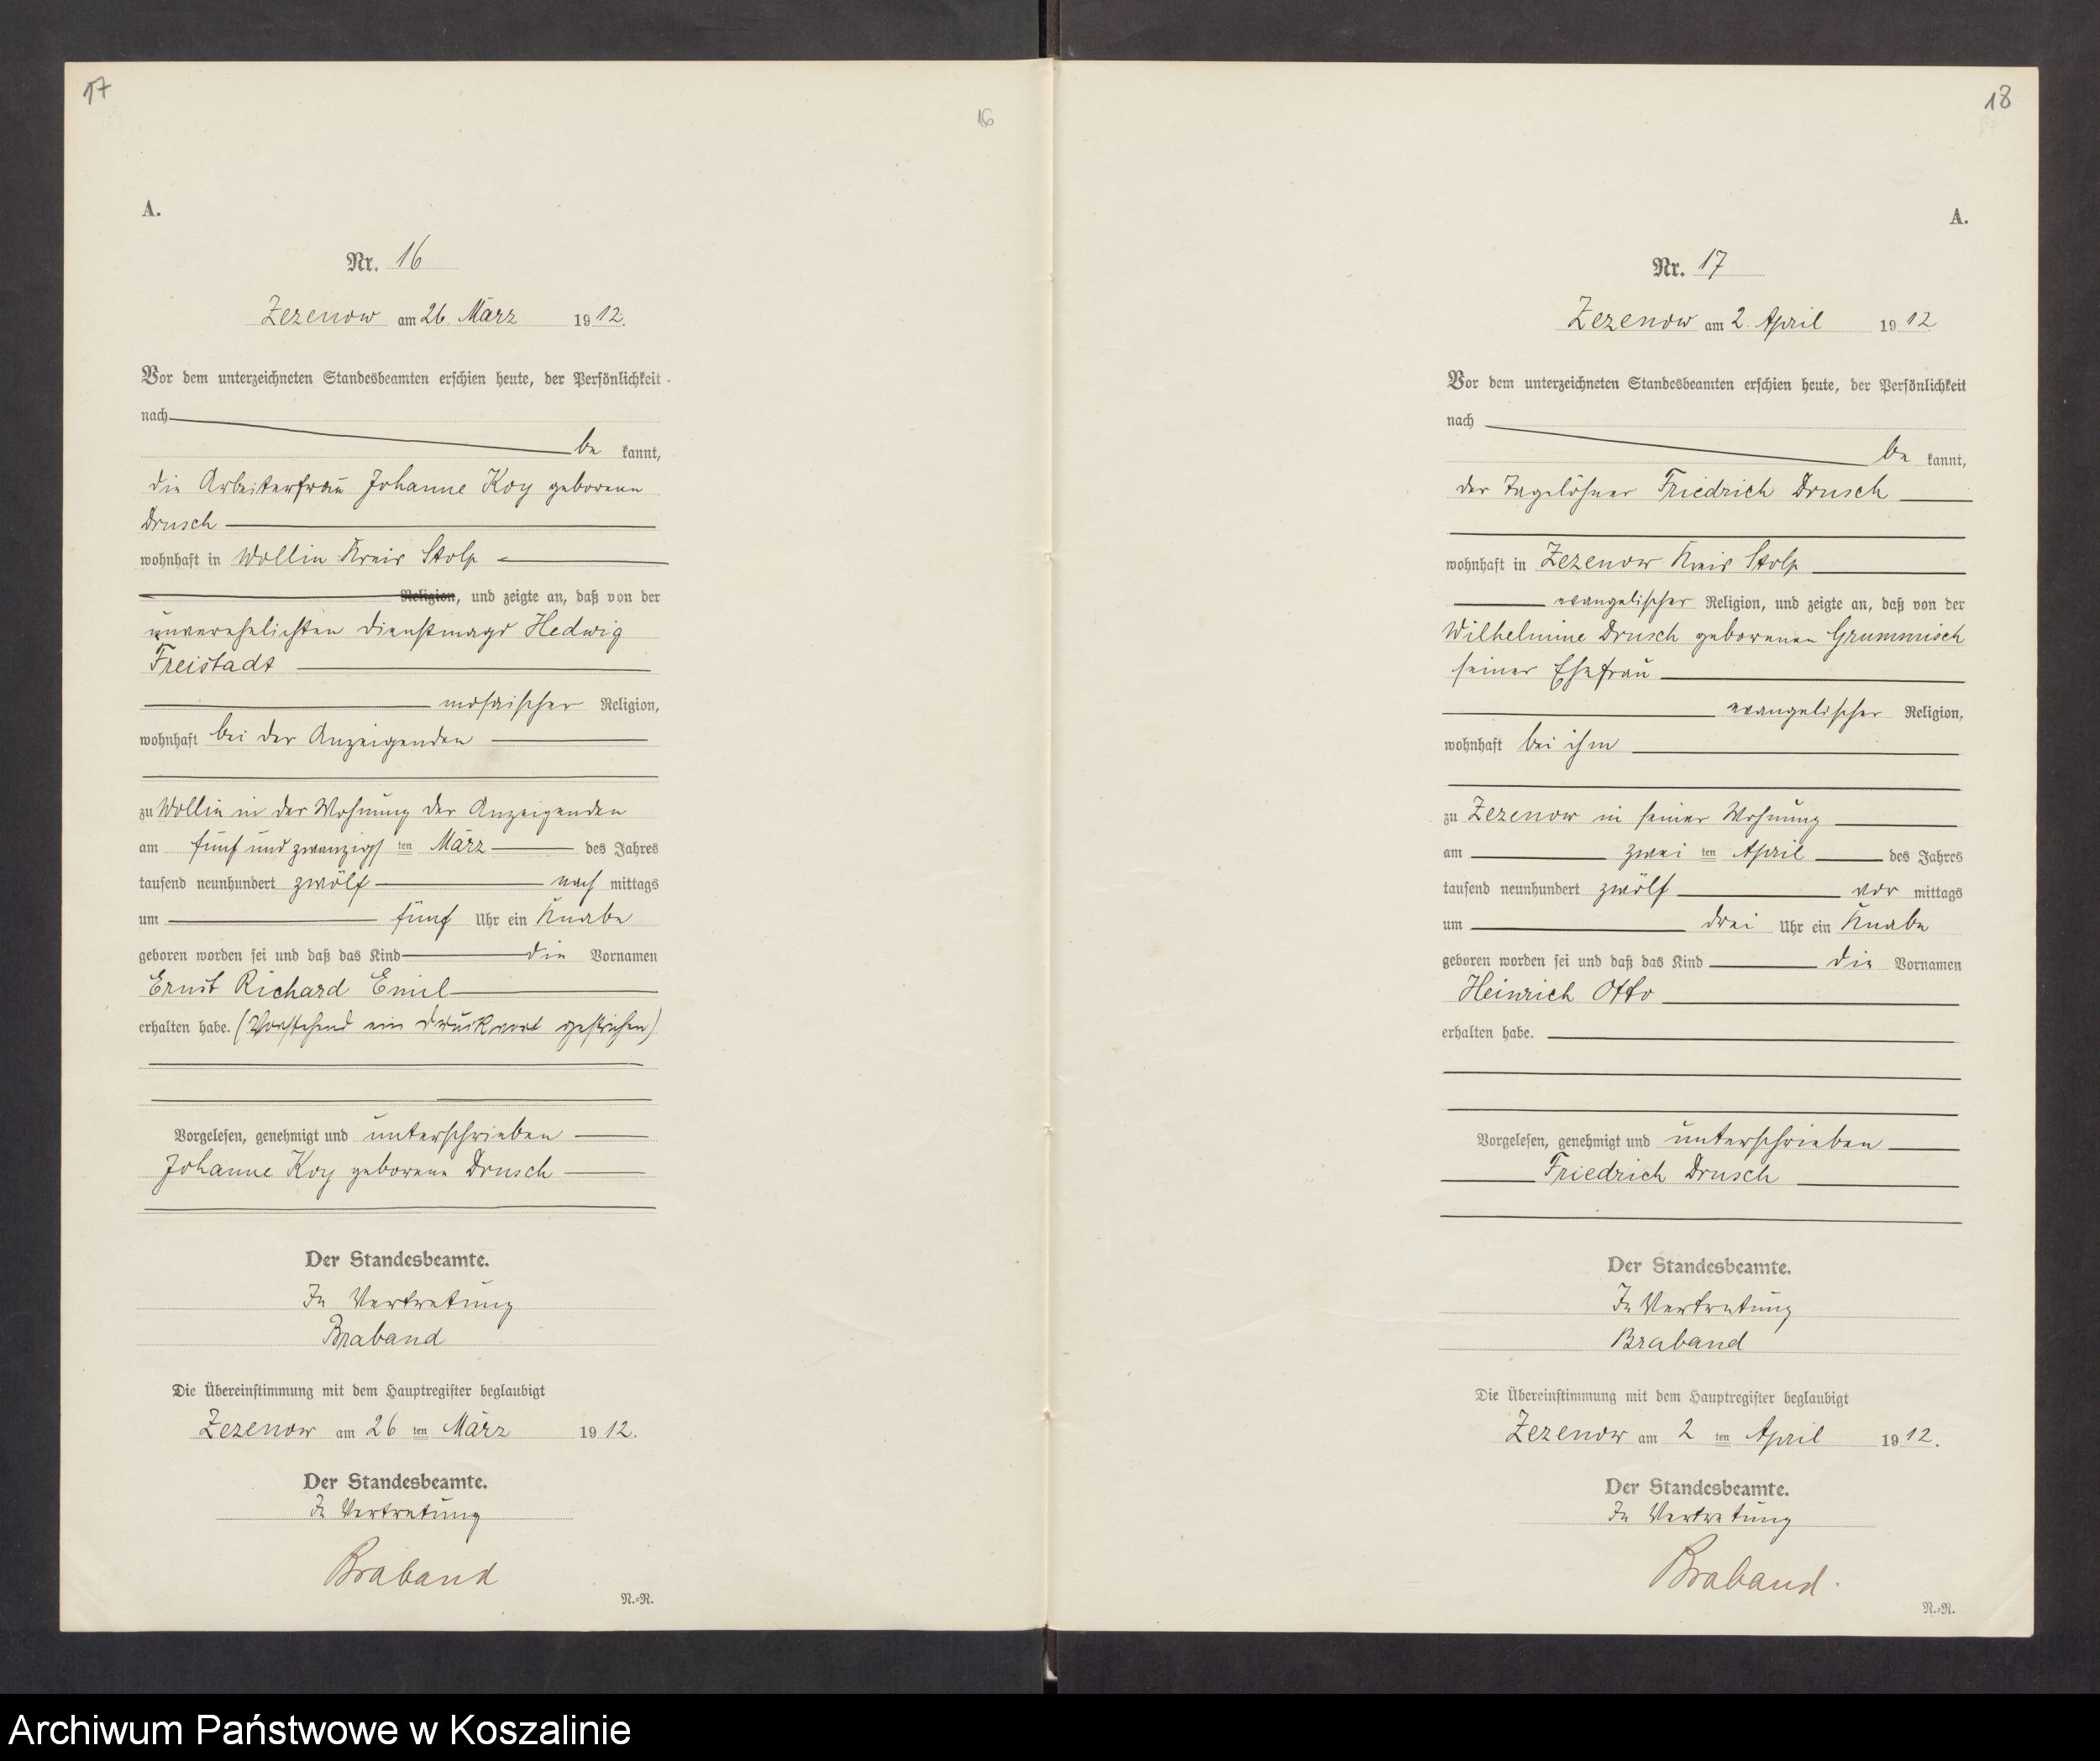 17
16
A.
Nr. 16
Zezenow am 26. März 1912.
Vor dem unterzeichneten Standesbeamten erschien heute, der Persönlichkeit
nach
be kannt,
die Arbeiterfrau Johanne Koy geborene
Drusch
wohnhaft in Wollin Kreis Stolp
Religion, und zeigte an, daß von der
unverehelichten Dienstmagd Hedwig
Freistadt
mosaischer Religion,
wohnhaft bei der Anzeigenden
zu Wollin in der Wohnung der Anzeigenden
am fünf und zwanzigs ten März des Jahres
tausend neunhundert zwölf nach mittags
um fünf Uhr ein Knabe
geboren worden sei und daß das Kind die Vornamen
Ernst Richard Emil
erhalten habe. (Vorstehend ein Druckwort gestrichen)
Vorgelesen, genehmigt und unterschrieben
Johanne Koy geborene Drusch
Der Standesbeamte.
In Vertretung
Braband
Die Übereinstimmung mit dem Hauptregister beglaubigt
Zezenow am 26 ten März 1912.
Der Standesbeamte.
In Vertretung
Braband
N.=R.
18
A.
Nr. 17
Zezenow am 2. April 1912
Vor dem unterzeichneten Standesbeamten erschien heute, der Persönlichkeit
nach
be kannt,
der Tagelöhner Friedrich Drusch
wohnhaft in Zezenow Kreis Stolp
evangelischer Religion, und zeigte an, daß von der
Wilhelmine Drusch geborenen Grummisch
seiner Ehefrau
evangelischer Religion,
wohnhaft bei ihm
zu Zezenow in seiner Wohnung
am zwei ten April des Jahres
tausend neunhundert zwölf vor mittags
um drei Uhr ein Knabe
geboren worden sei und daß das Kind die Vornamen
Heinrich Otto
erhalten habe.
Vorgelesen, genehmigt und unterschrieben
Friedrich Drusch
Der Standesbeamte.
In Vertretung
Braband
Die Übereinstimmung mit dem Hauptregister beglaubigt
Zezenow am 2 ten April 1912.
Der Standesbeamte.
In Vertretung
Braband.
N.=R.
Archiwum Państwowe w Koszalinie